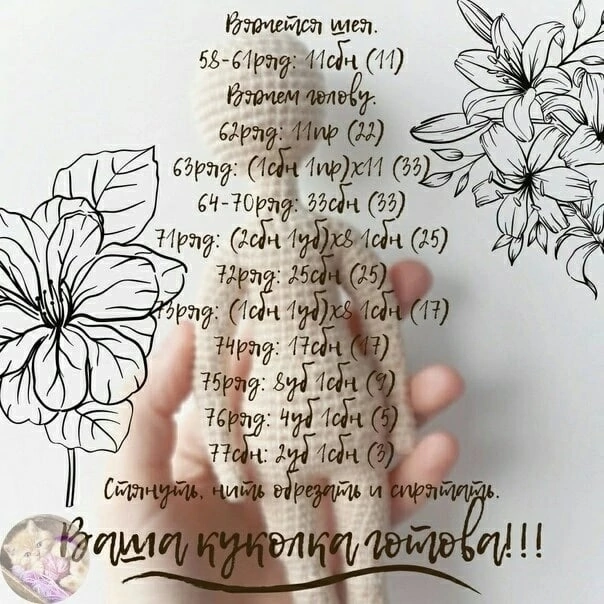 Вяжется шея.
58-61ряд: 11сбн (11)
Вяжем голову.
62ряд: 11пр (22)
63ряд: (1сбн 1пр)х11 (33)
64-70ряд: 33сбн (33)
71ряд: (2сбн 1уб)х8 1сбн (25)
72ряд: 25сбн (25)
73ряд: (1сбн 1уб)х8 1сбн (17)
74ряд: 17сбн (17)
75ряд: 8уб 1сбн (9)
76ряд: 4уб 1сбн (5)
77сбн: 2уб 1сбн (3)
Стянуть, нить обрезать и спрятать.
Ваша куколка готова!!!